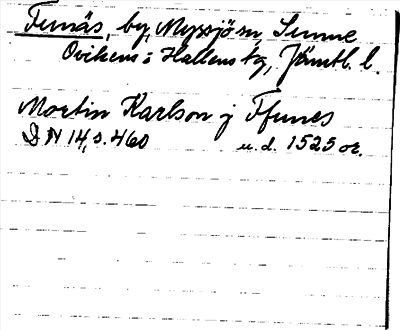 Funäs, by, Myssjö sn, Sunne
Ovikens o Hallens tg, Jämtl. l.
Mortin Karlson j Ffunes
DN 14, s. 460 u. d. 1525 or.